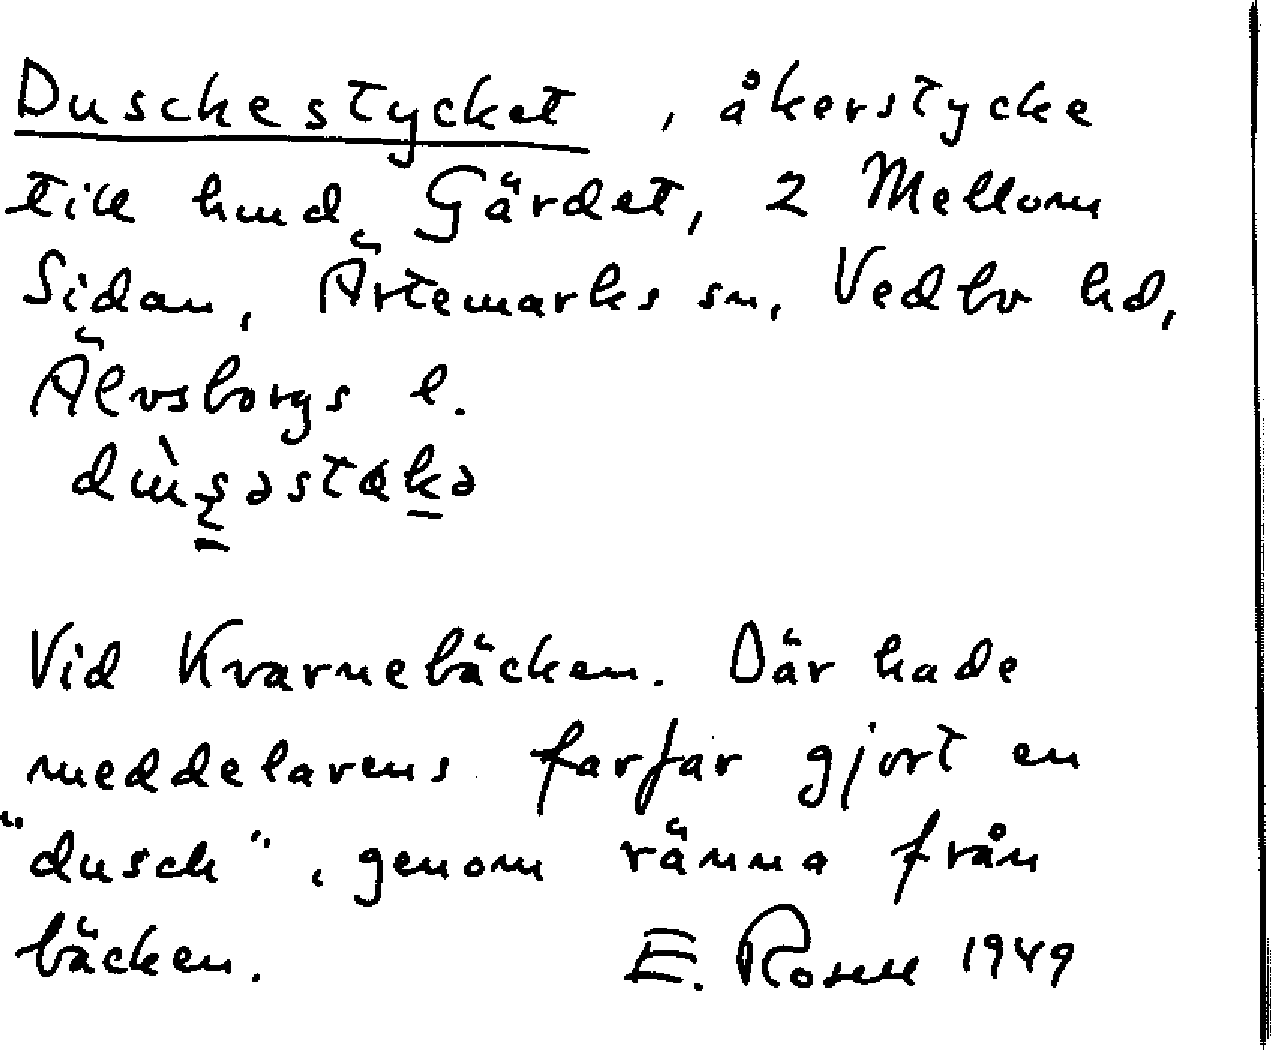 Duschestycket, åkerstycke
till hmd Gärdet, 2 Mellom
Sidan, Ärtemarks sn, Vedbo hd,
Älvsborgs l.
Vid Kvarnebäcken. Där hade
meddelarens farfar gjort en
"dusch", genom ränna från
bäcken. E. Rosell 1949